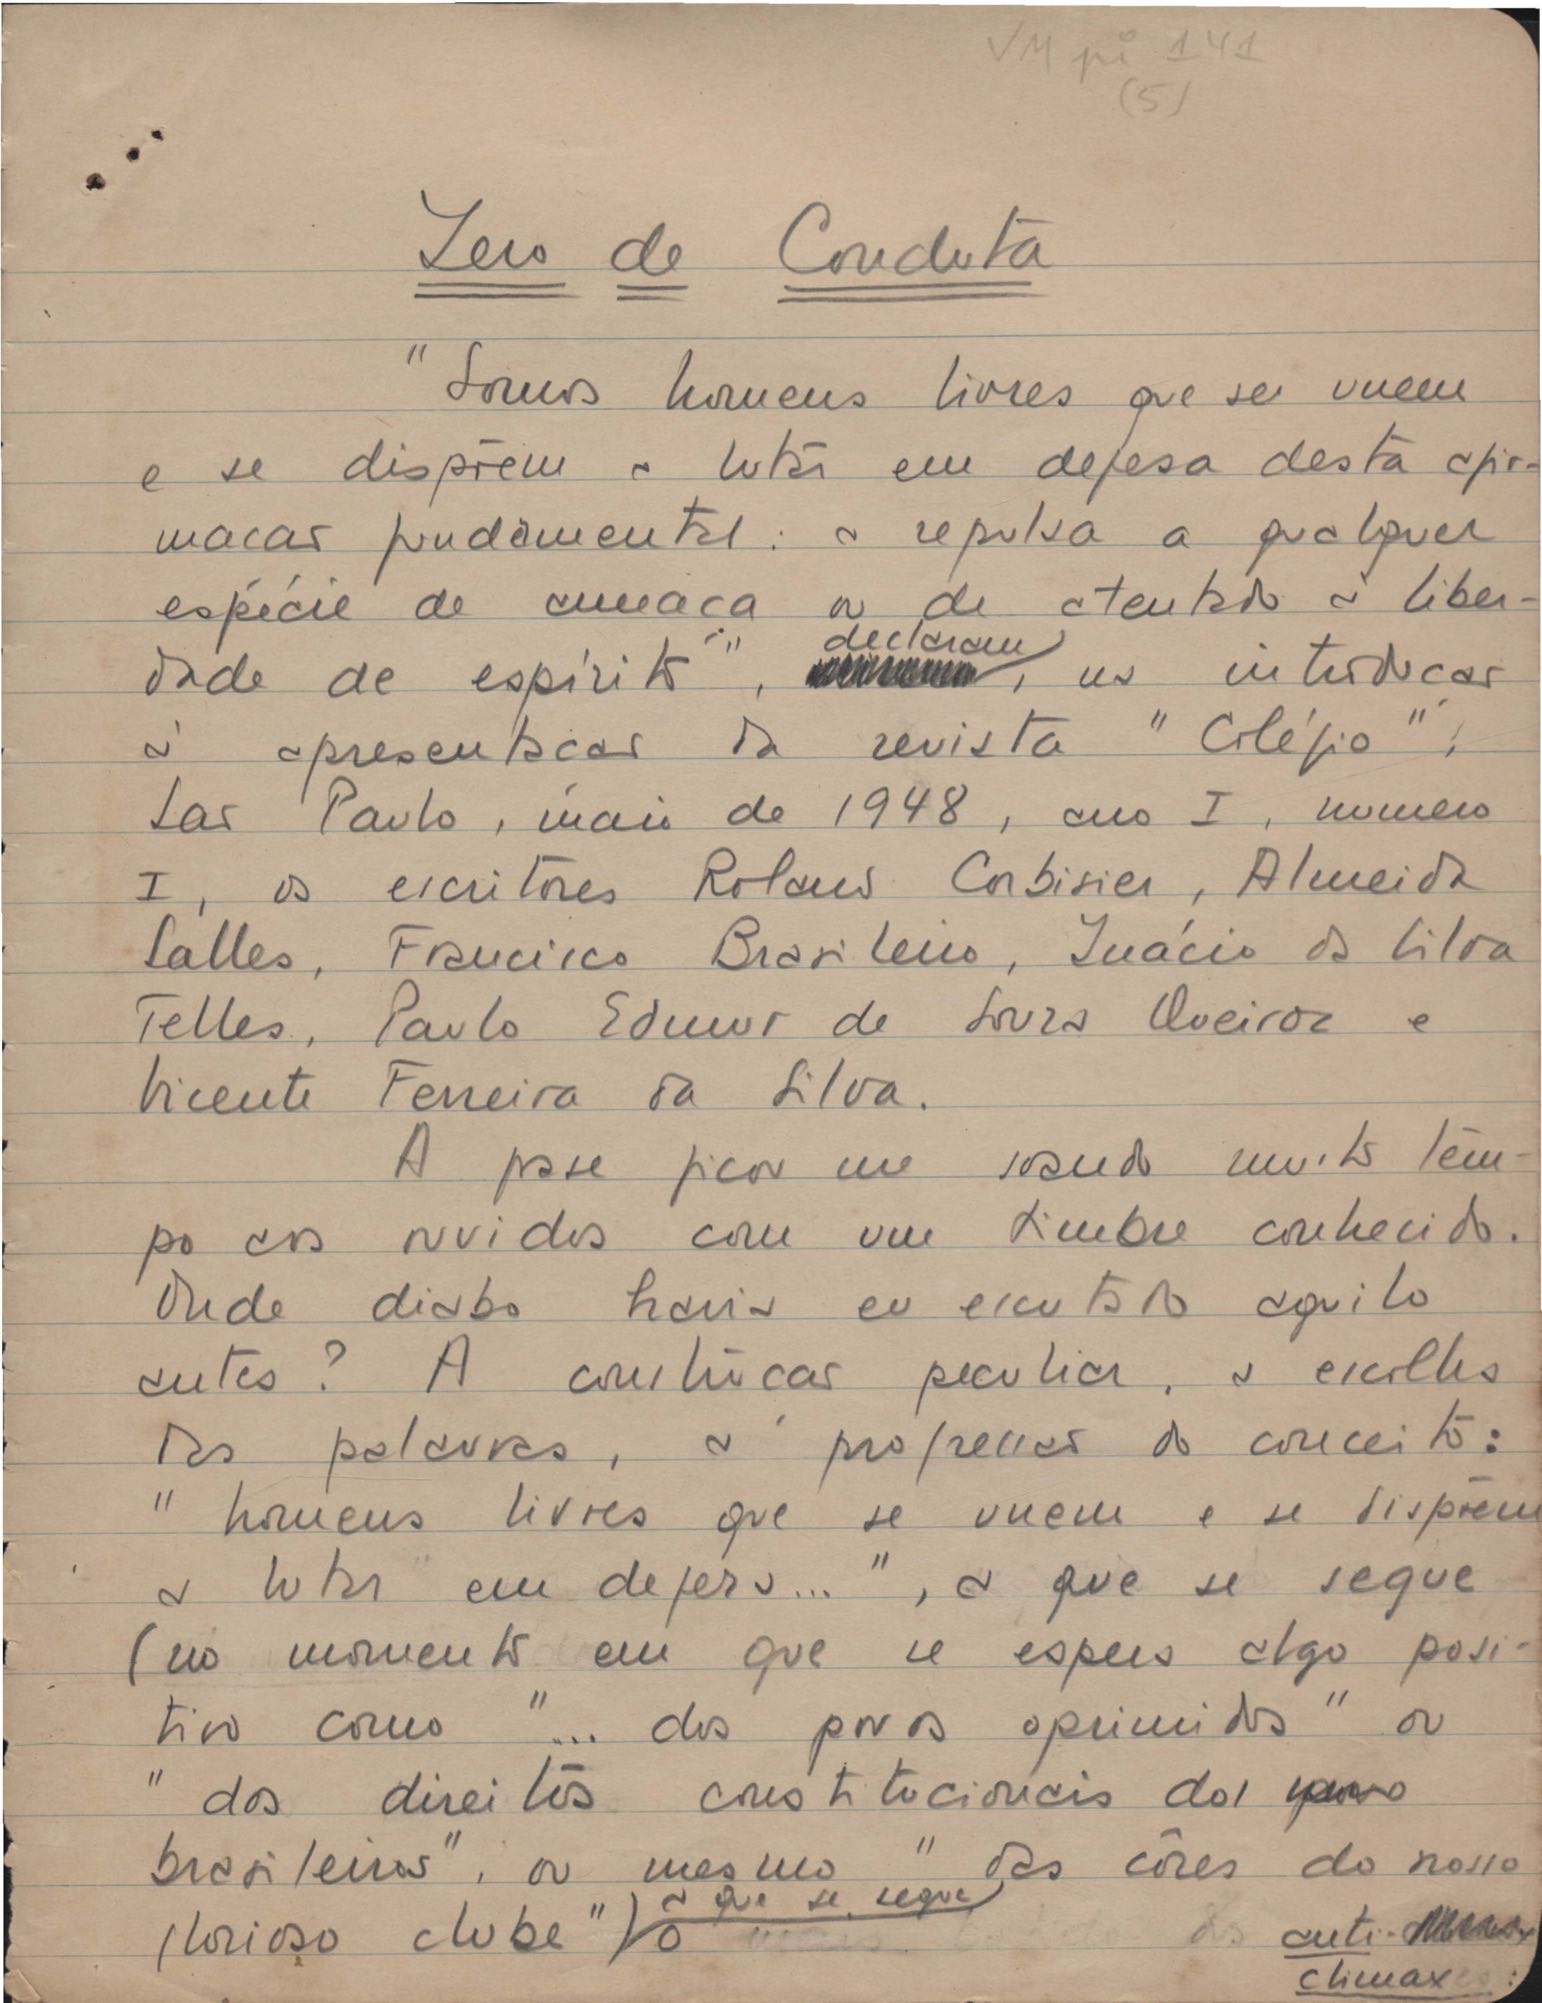 VM pi 141
(5)
Zero de Conduta
"Somos homens livres que se unem
e se dispõem a lutar em defesa desta afir-
mação fundamental: a repulsa a qualquer
espécie de ameaça ou de atentado à liber-
dade de espírito", declaram, na introdução
à apresentação da revista "Colégio",
São Paulo, maio de 1948, ano I, numero
I, os escritores Roland Corbisier, Almeida
Salles, Francisco Brasileiro, Inácio da Silva
Telles, Paulo Edmur de Souza Queiroz e
Vicente Ferreira da Silva.
A frase ficou me soando muito tem-
po aos ouvidos com um timbre conhecido.
Onde diabo havia eu escutado aquilo
antes? A construção peculiar, a escolha
das palavras, a progressão do conceito:
"homens livres que se unem e se dispõem
a lutar em defesa...", a que se segue
(no momento em que se espera algo posi-
tivo como "... dos povos oprimidos" ou
"dos direitos constitucionais dos
brasileiros", ou mesmo "das côres do nosso
glorioso clube") a que se segue o
anti-
climax: